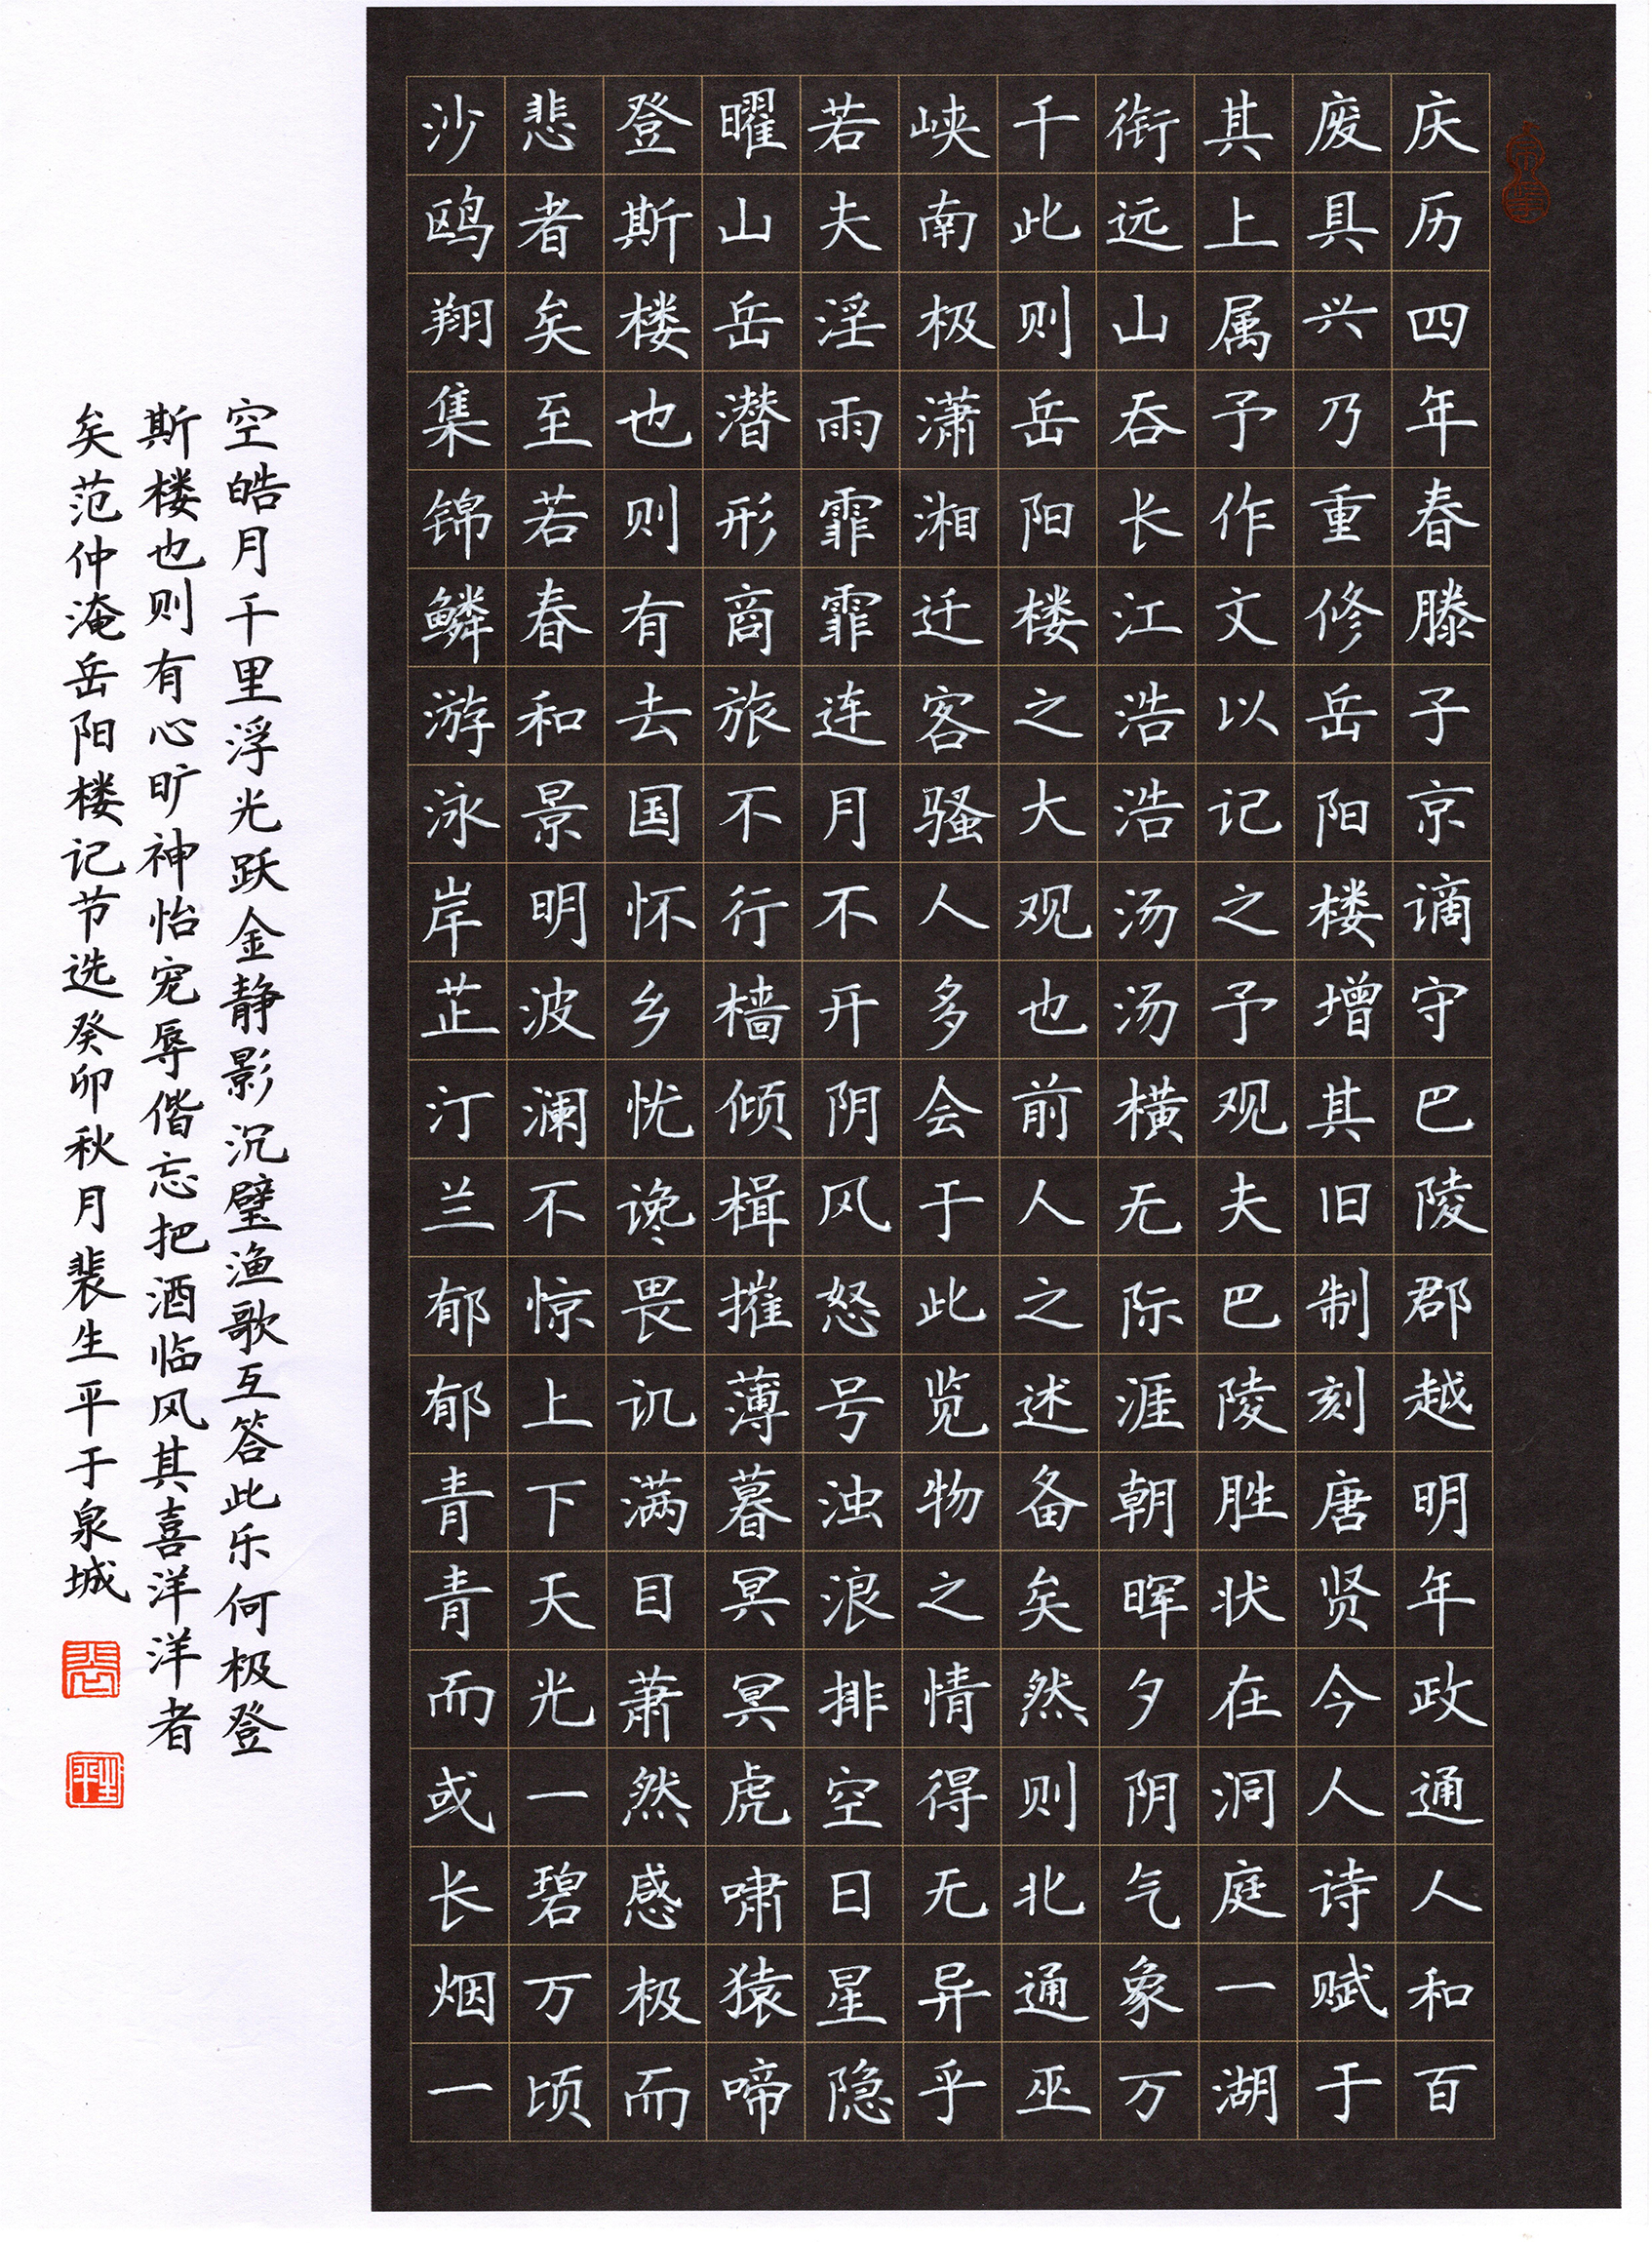 庆历四年春滕子京谪守巴陵郡越明年政通人和百
废具兴乃重修岳阳楼增其旧制刻唐贤今人诗赋于
其上属予作文以记之予观夫巴陵胜状在洞庭一湖
衔远山吞长江浩浩汤汤横无际涯朝晖夕阴气象万
千此则岳阳楼之大观也前人之述备矣然则北通巫
峡南极潇湘迁客骚人多会于此览物之情得无异乎
若夫淫雨霏霏连月不开阴风怒号浊浪排空日星隐
曜山岳潜形商旅不行樯倾楫摧薄暮冥冥虎啸猿啼
登斯楼也则有去国怀乡忧谗畏讥满目萧然感极而
悲者矣至若春和景明波澜不惊上下天光一碧万顷
沙鸥翔集锦鳞游泳岸芷汀兰郁郁青青而或长烟一
空皓月千里浮光跃金静影沉璧渔歌互答此乐何极登
斯楼也则有心旷神怡宠辱偕忘把酒临风其喜洋洋者
矣范仲淹岳阳楼记节选癸卯秋月裴生平于泉城
裴
生平